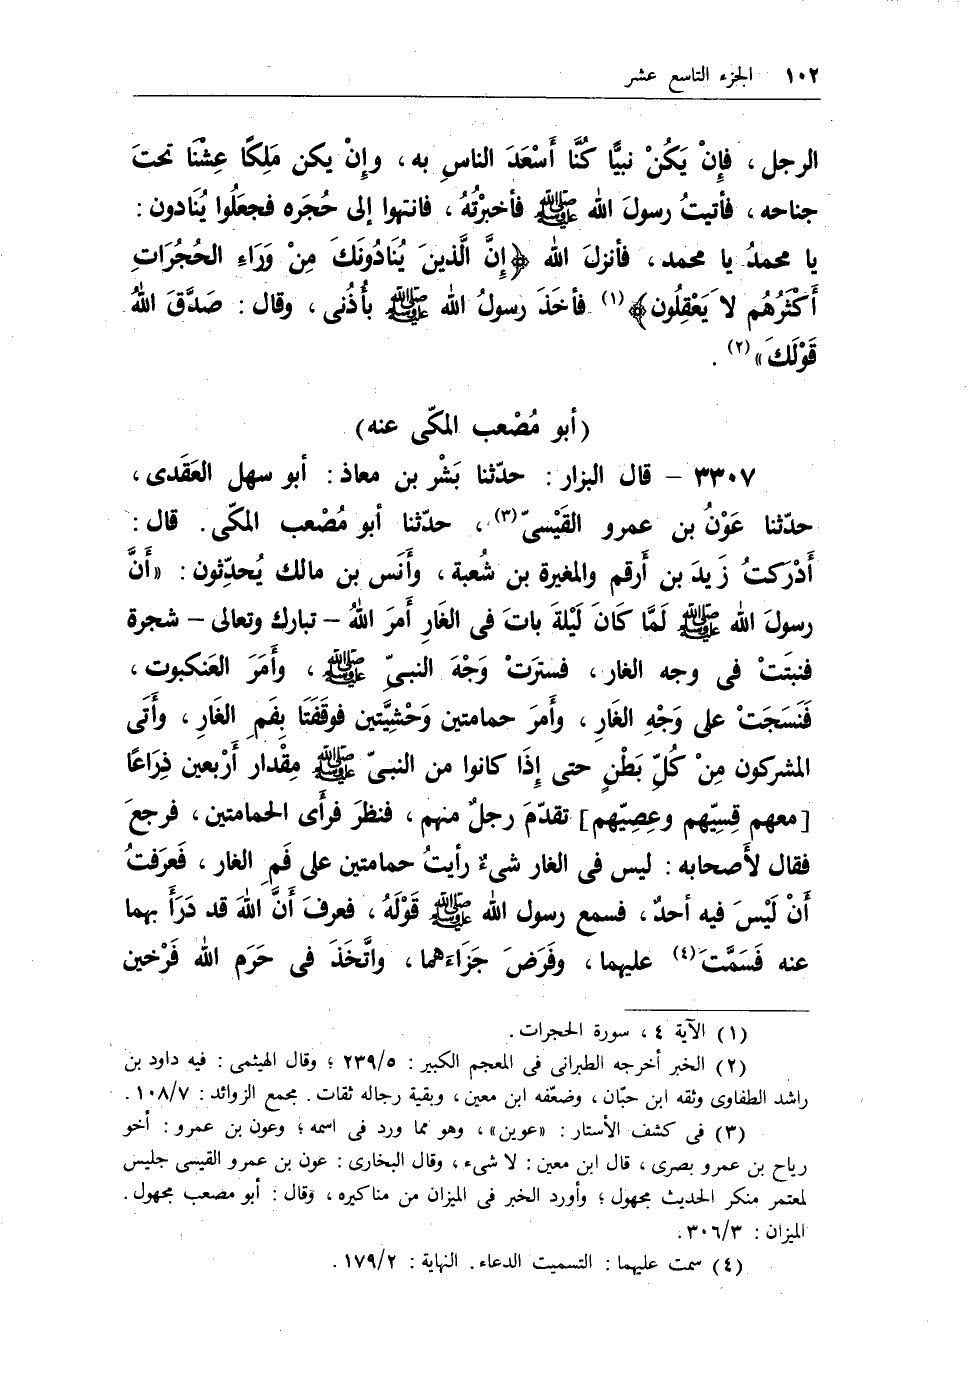 ١٠٢ الجزء التاسع عشر
الرجل ، فإِنْ يَكُنْ نبيًّا كُنَّا أَسْعَدَ الناسِ به ، وإِنْ يكن مَلِكًا عِشْنَا تحتَ
جناحه ، فأتيتُ رسولَ الله ﷺ فأخبرْتُهُ ، فانتهوا إلى حُجَره فجعَلُوا يُنَادون :
يا محمدُ يا محمد ، فأنزلَ الله ﴿إِنَّ الَّذينَ يُنَادُونَكَ مِنْ وَرَاءِ الحُجُرَاتِ
أَكْثَرُهُم لَا يَعْقِلُون﴾(١) فأخَذَ رسولُ الله ﷺ بأُذُنى ، وقال : صَدَّقَ اللهُ
قَوْلَكَ»(٢) .
(أبو مُصْعب المكّى عنه)
٣٣٠٧ – قال البزار : حدّثنا بَشْر بن معاذ : أبو سهل العَقَدى ،
حدّثنا عَوْنُ بن عمرو القَيْسىّ(٣) ، حدّثنا أبو مُصْعب المكّى . قال :
أَدْرَكتُ زيدَ بن أرقم والمغيرة بن شُعبة ، وأَنَس بن مالك يُحدِّثون : «أَنَّ
رسولَ الله ﷺ لَمَّا كَانَ لَيْلةَ باتَ فى الغَارِ أمرَ اللهُ – تبارك وتعالى – شجرة
فنبتَتْ فى وجه الغار ، فسترَتْ وَجْهَ النبىِّ ﷺ ، وأَمَرَ العَنكبوت ،
فَنَسَجَتْ على وَجْهِ الغَارِ ، وأَمرَ حمامتين وَحْشيَّتين فوقَفَتَا بِفَمِ الغَارِ ، وأَتَى
المشركون مِنْ كُلِّ بَطْنٍ حتى إِذَا كانوا من النبىّ ﷺ مِقْدار أَرْبعين ذِرَاعًا
[معهم قِسِيّهم وعِصِيّهم] تقدّمَ رجلٌ منهم ، فنظرَ فرأى الحمامتين ، فرجعَ
فقال لأَصحابه : ليس فى الغار شىءٌ رأيتُ حمامتين على فَمِ الغار ، فَعرَفتُ
أَنْ لَيْسَ فيه أحدٌ ، فسمع رسول الله ﷺ قَوْلَهُ ، فعرفَ أَنَّ اللهَ قد دَرَأَ بهما
عنه فَسَمَّتَ(٤) عليهما ، وفَرَضَ جَزَاءَهما ، واتَّخَذَ فى حَرَم الله فَرْخين
(١) الآية ٤ ، سورة الحجرات .
(٢) الخبر أخرجه الطبرانى فى المعجم الكبير : ٢٣٩/٥ ؛ وقال الهيثمى : فيه داود بن
راشد الطفاوى وثقه ابن حبّان ، وضعّفه ابن معين ، وبقية رجاله ثقات . مجمع الزوائد : ١٠٨/٧ .
(٣) فى كشف الأستار : «عوين» ، وهو مما ورد فى اسمه ؛ وعون بن عمرو : أخو
رياح بن عمرو بصرى ، قال ابن معين : لا شىء ، وقال البخارى : عون بن عمرو القيسى جليس
لمعتمر منكر الحديث مجهول ؛ وأورد الخبر فى الميزان من مناكيره ، وقال : أبو مصعب مجهول .
الميزان : ٣٠٦/٣ .
(٤) سمت عليهما : التسميت الدعاء . النهاية : ١٧٩/٢ .